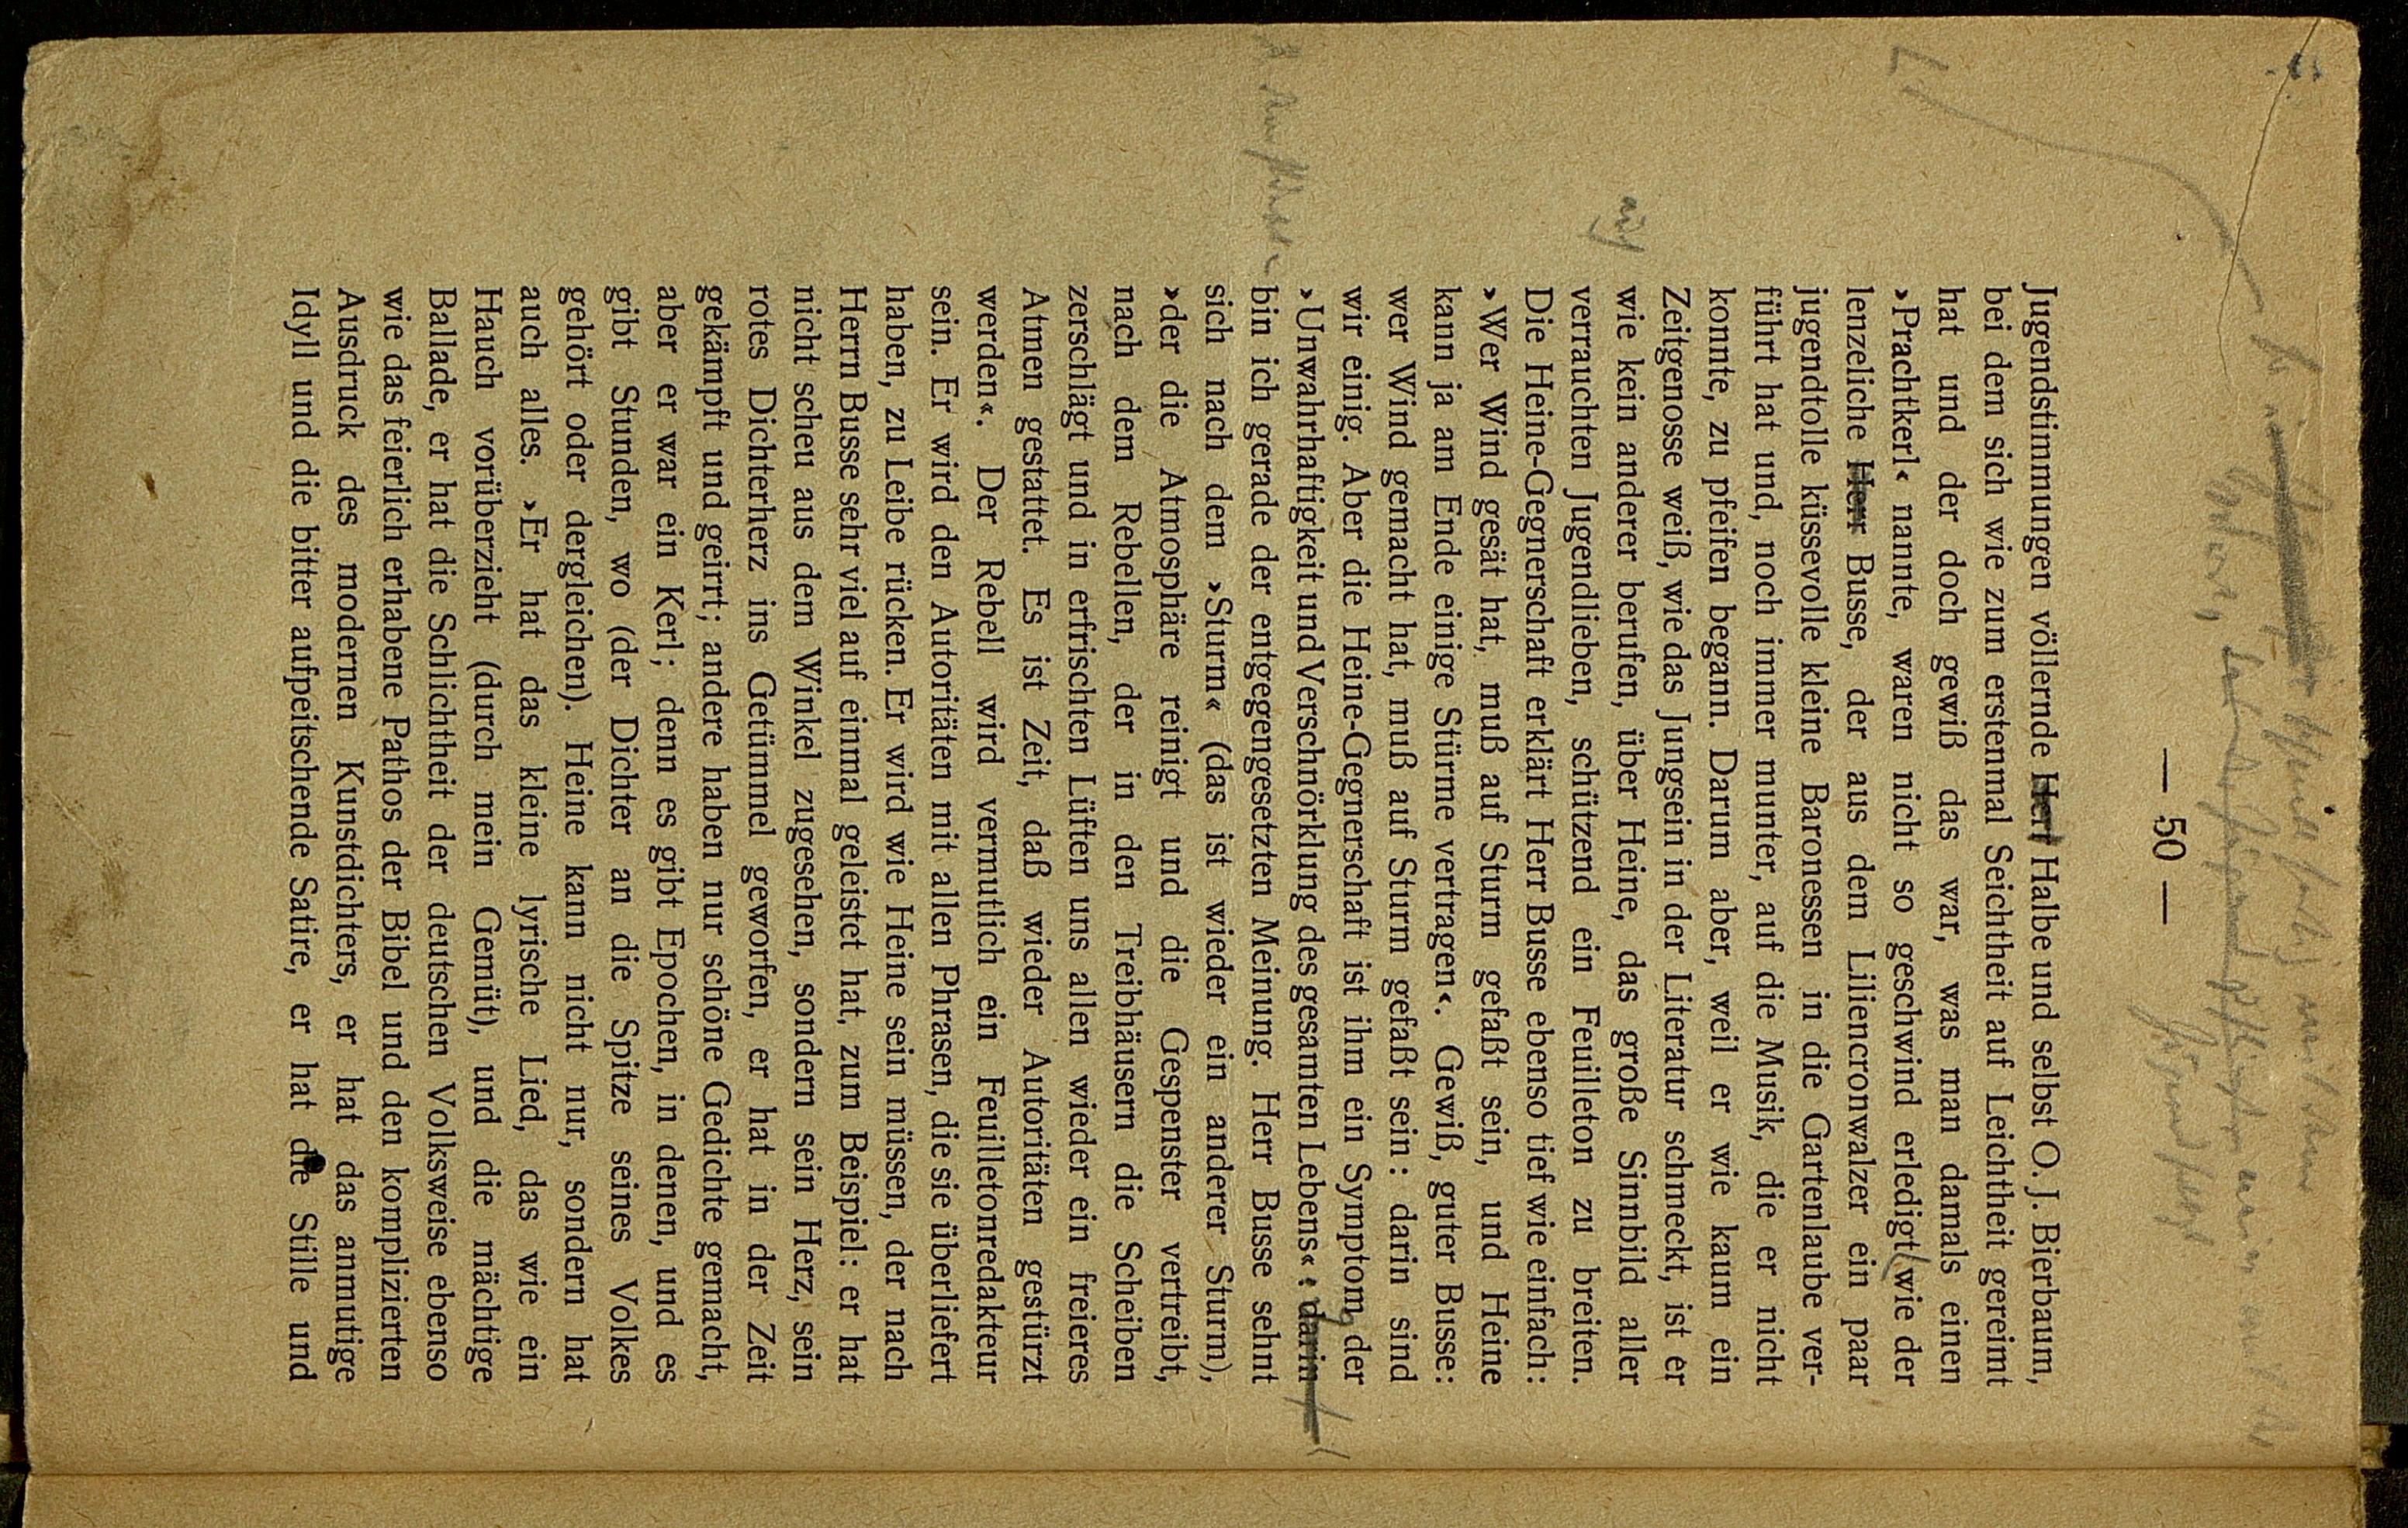 — 50 —
Jugendstimmungen völlernde Herr Halbe und selbst O. J. Bierbaum,
bei dem sich wie zum erstenmal Seichtheit auf Leichtheit gereimt
hat und der doch gewiß das war, was man damals einen
»Prachtkerl« nannte, waren nicht so geschwind erledigt wie der
lenzeliche Herr Busse, der aus dem Liliencronwalzer ein paar
jugendtolle küssevolle kleine Baronessen in die Gartenlaube ver-
führt hat und, noch immer munter, auf die Musik, die er nicht
konnte, zu pfeifen begann. Darum aber, weil er wie kaum ein
Zeitgenosse weiß, wie das Jungsein in der Literatur schmeckt, ist er
wie kein anderer berufen, über Heine, das große Sinnbild aller
verrauchten Jugendlieben, schützend ein Feuilleton zu breiten.
Die Heine-Gegnerschaft erklärt Herr Busse ebenso tief wie einfach:
»Wer Wind gesät hat, muß auf Sturm gefaßt sein, und Heine
kann ja am Ende einige Stürme vertragen«. Gewiß, guter Busse:
wer Wind gemacht hat, muß auf Sturm gefaßt sein: darin sind
wir einig. Aber die Heine-Gegnerschaft ist ihm ein Symptom der
»Unwahrhaftigkeit und Verschnörklung des gesamten Lebens«: darin
bin ich gerade der entgegengesetzten Meinung. Herr Busse sehnt
sich nach dem »Sturm« (das ist wieder ein anderer Sturm),
»der die Atmosphäre reinigt und die Gespenster vertreibt,
nach dem Rebellen, der in den Treibhäusern die Scheiben
zerschlägt und in erfrischten Lüften uns allen wieder ein freieres
Atmen gestattet. Es ist Zeit, daß wieder Autoritäten gestürzt
werden«. Der Rebell wird vermutlich ein Feuilletonredakteur
sein. Er wird den Autoritäten mit allen Phrasen, die sie überliefert
haben, zu Leibe rücken. Er wird wie Heine sein müssen, der nach
Herrn Busse sehr viel auf einmal geleistet hat, zum Beispiel: er hat
nicht scheu aus dem Winkel zugesehen, sondern sein Herz, sein
rotes Dichterherz ins Getümmel geworfen, er hat in der Zeit
gekämpft und geirrt; andere haben nur schöne Gedichte gemacht,
aber er war ein Kerl; denn es gibt Epochen, in denen, und es
gibt Stunden, wo (der Dichter an die Spitze seines Volkes
gehört oder dergleichen). Heine kann nicht nur, sondern hat
auch alles. »Er hat das kleine lyrische Lied, das wie ein
Hauch vorüberzieht (durch mein Gemüt), und die mächtige
Ballade, er hat die Schlichtheit der deutschen Volksweise ebenso
wie das feierlich erhabene Pathos der Bibel und den komplizierten
Ausdruck des modernen Kunstdichters, er hat das anmutige
Idyll und die bitter aufpeitschende Satire, er hat die Stille und